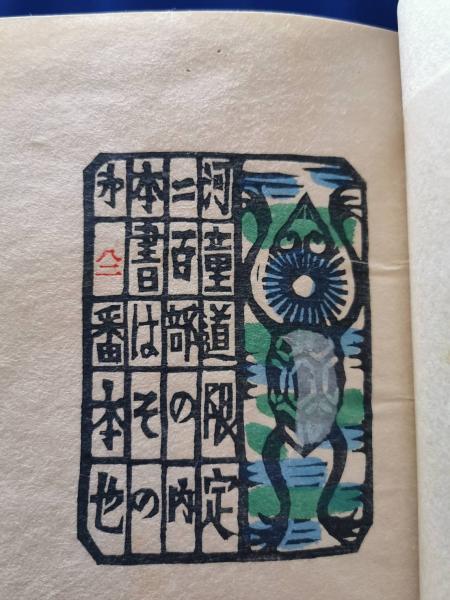 河童道限定
二百部の内
本書はその
第八二番本也